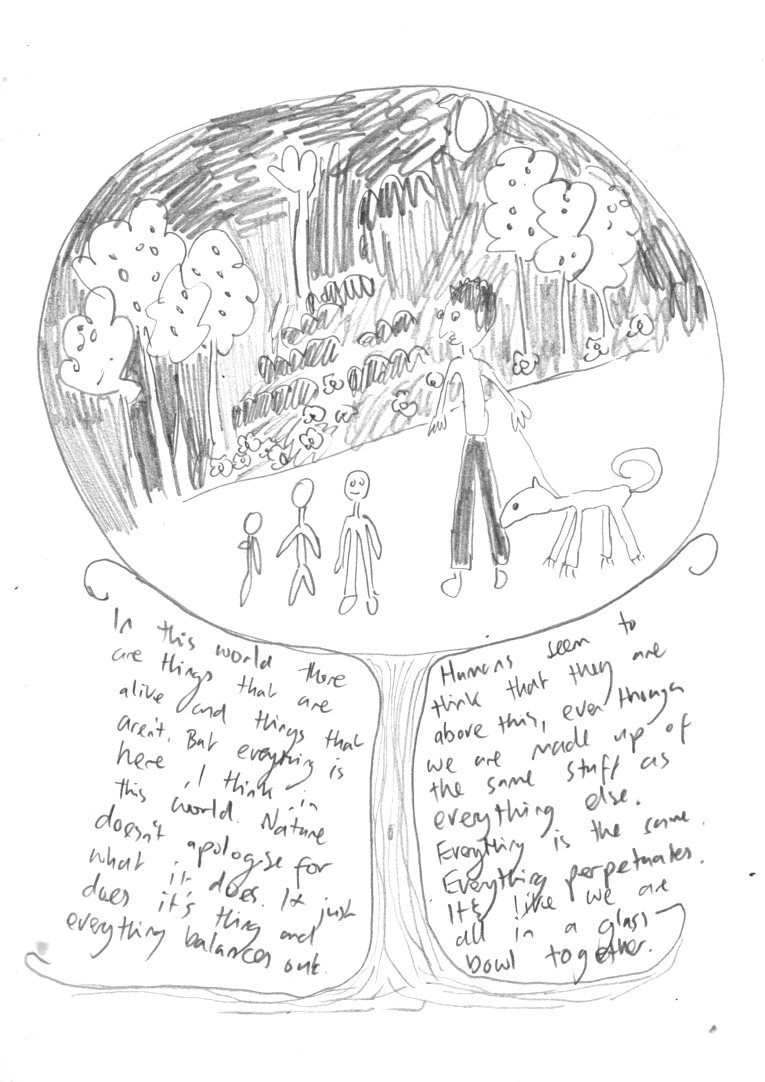 In this world there
are things that are
alive and things that
aren't. But everything is
here, I think, in
this world. Nature
doesn't apologise for
what it does. It just
does it's thing and
everything balances out.
Humans seem to
think that they are
above this, even though
we are made up of
the same stuff as
everything else.
Everything is the same.
Everything perpetuates.
It's like we are
all in a glass
bowl together.